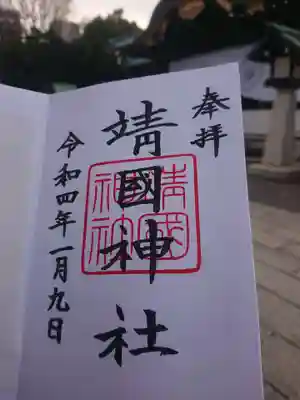 奉拝
靖國神社
靖國神社
令和四年一月九日